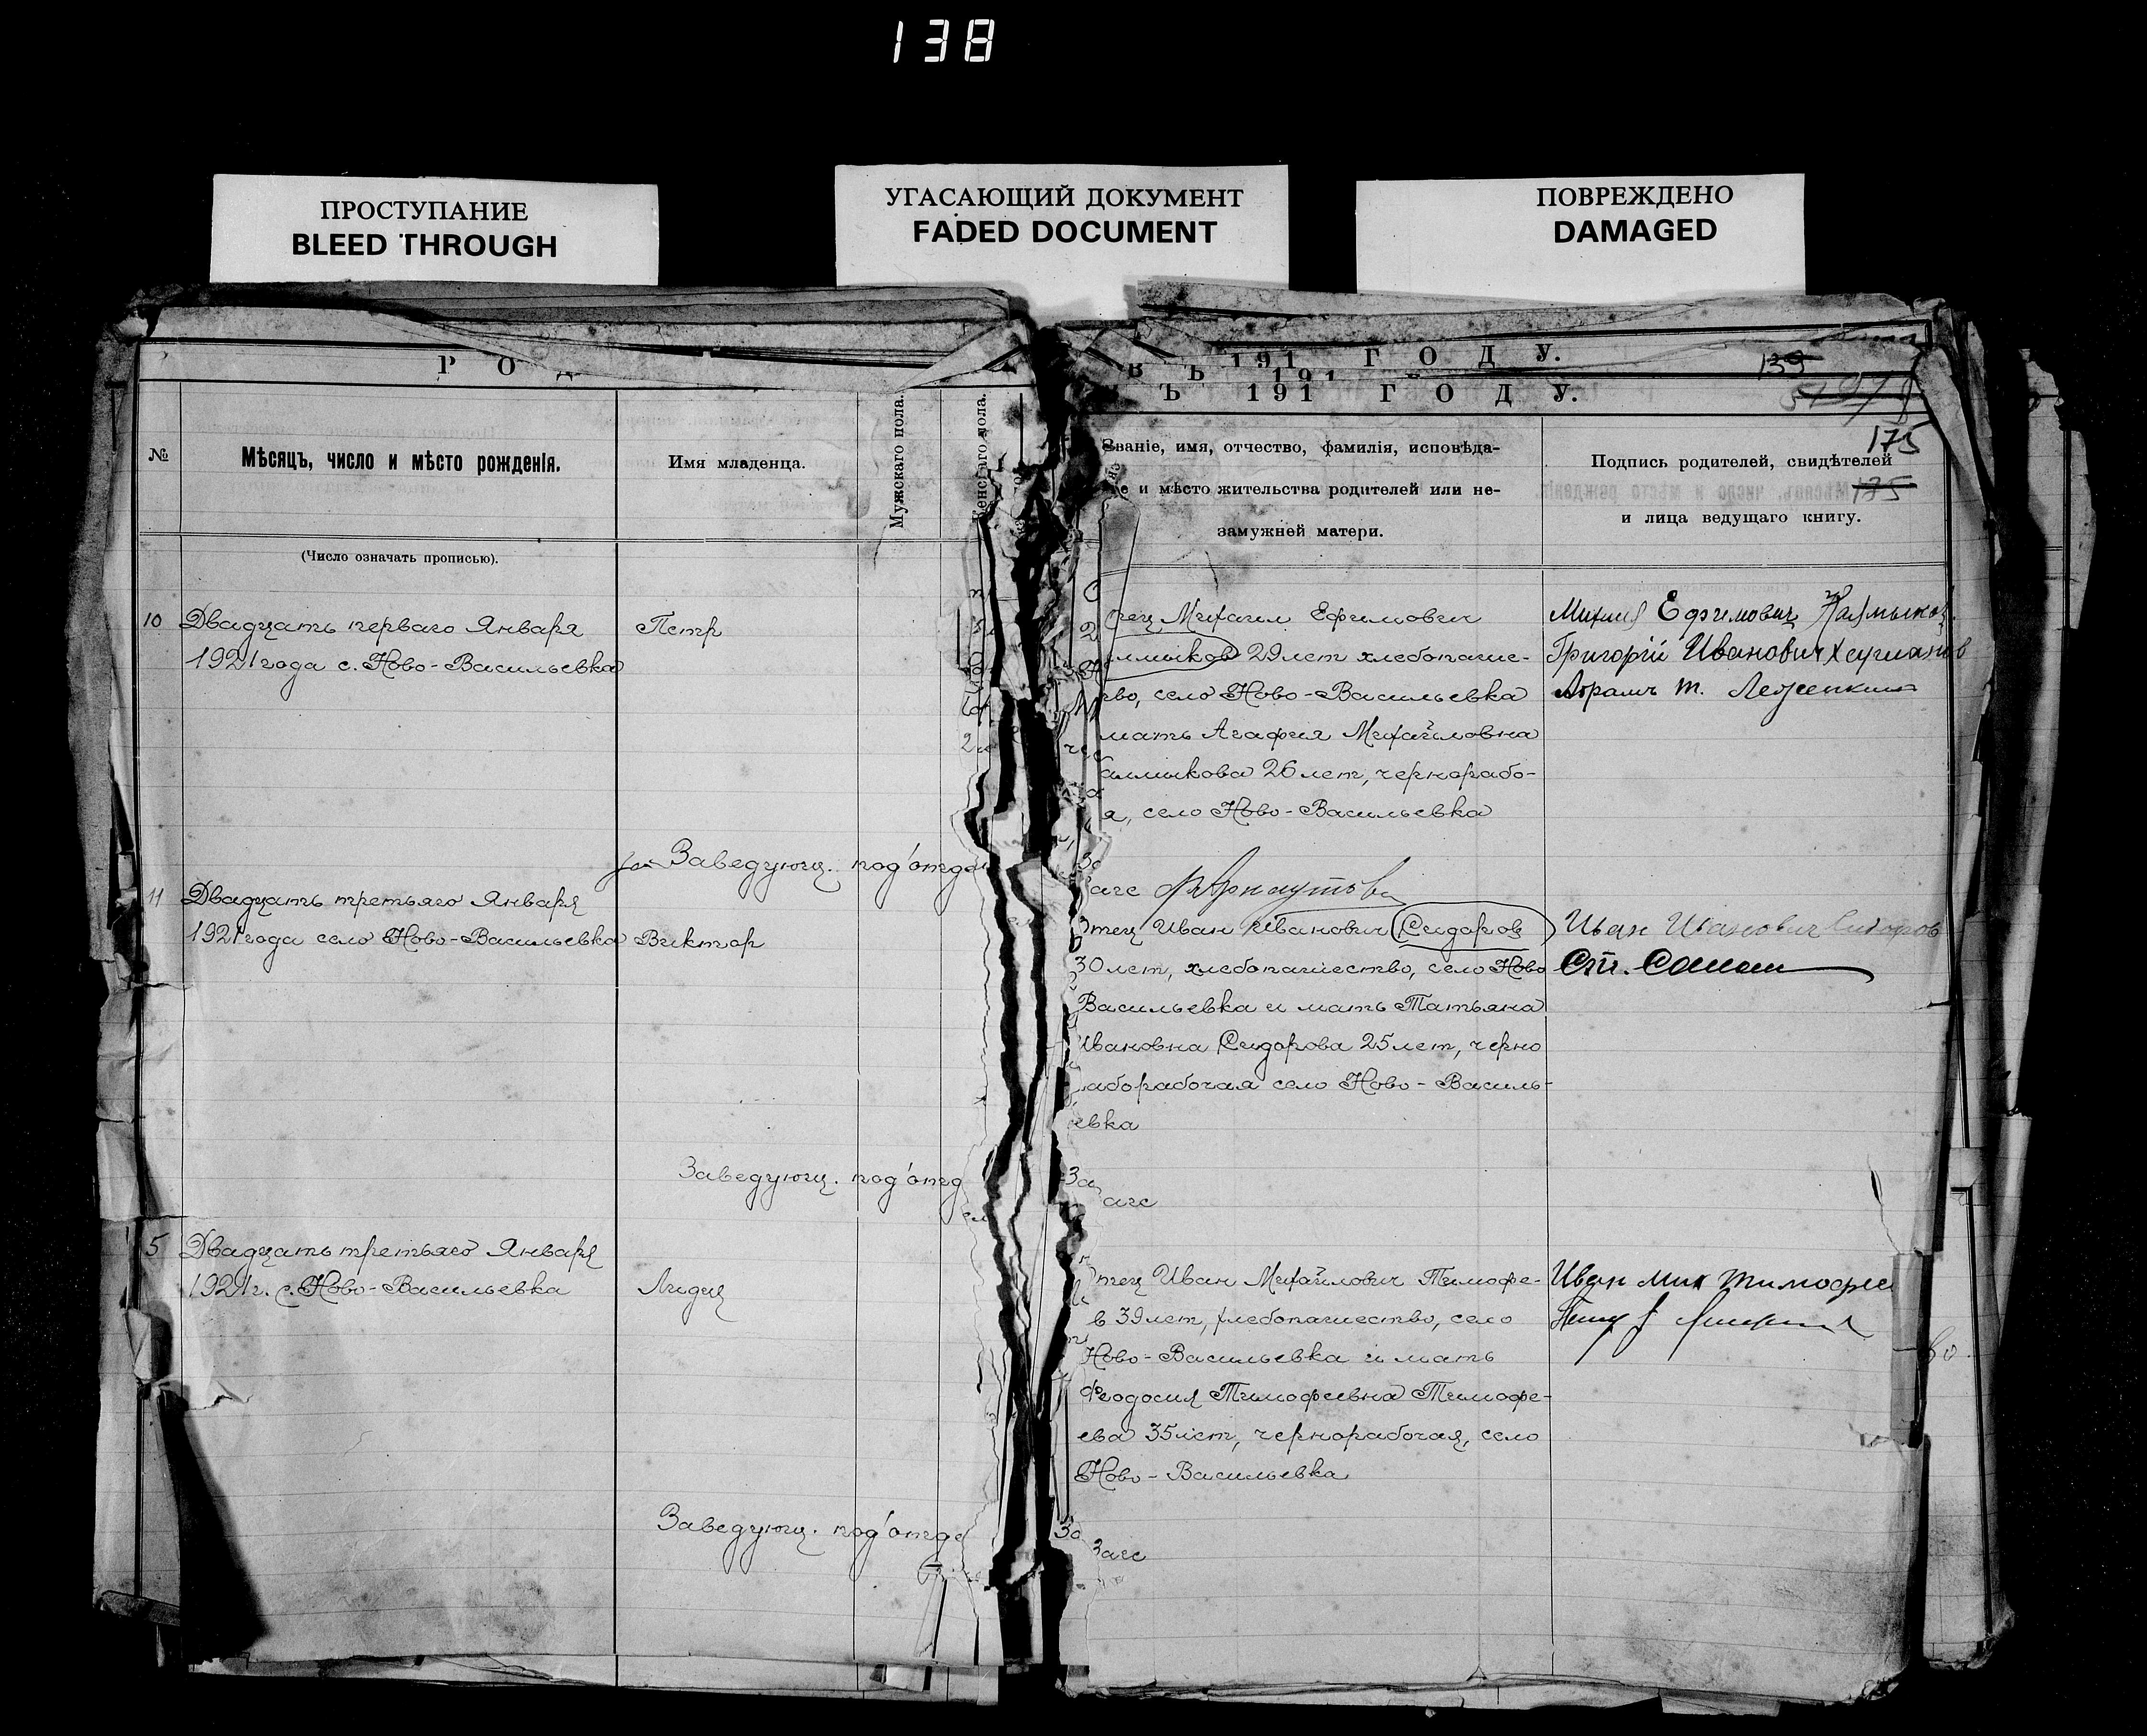 138
ПРОСТУПАНИЕ
BLEED THROUGH
УГАСАЮЩИЙ ДОКУМЕНТ
FADED DOCUMENT
ПОВРЕЖДЕНО
DAMAGED
Р О
191 Г О Д У.
139
Ъ 191 Г О Д У.
№
Мѣсяцъ, число и мѣсто рожденія.
Имя младенца.
Мужскаго пола.
Женскаго пола.
Званіе, имя, отчество, фамилія, исповѣда-
е и мѣсто жительства родителей или не-
замужней матери.
175
Подпись родителей, свидѣтелей
175
и лица ведущаго книгу.
(Число означать прописью).
10 Двадцать перваго Января
1921 года с. Ново-Васильевка
Петр
тец Михаил Ефимович
лмыков 29 лет хлебопаше-
во, село Ново-Васильевка
мать Агафия Михайловна
алмыкова 26 лет, чернорабо-
я, село Ново-Васильевка
Ефимович
Григорій Иванович
Заведующ. под'отде
агс
11 Двадцать третьяго Января
1921 года село Ново-Васильевка
Виктор
Отец Иван Иванович Сидоров
30 лет, хлебопашество, село Ново
Васильевка и мать Татьяна
Ивановна Сидорова 25 лет, черно
аборабочая село Ново-Василь-
евка
Иван Иванович Сидоров
Заведующ. под'отд
агс
5 Двадцать третьяго Января
1921 г. с. Ново-Васильевка
Лидия
тец Иван Михайлович Тимофе-
в 39 лет, хлебопашество, село
Ново-Васильевка и мать
Феодосия Тимофеевна Тимофе-
ева 35 лет, чернорабочая, село
Ново-Васильевка
Иван Мих Тимофее
Заведующ. под'отде
Загс